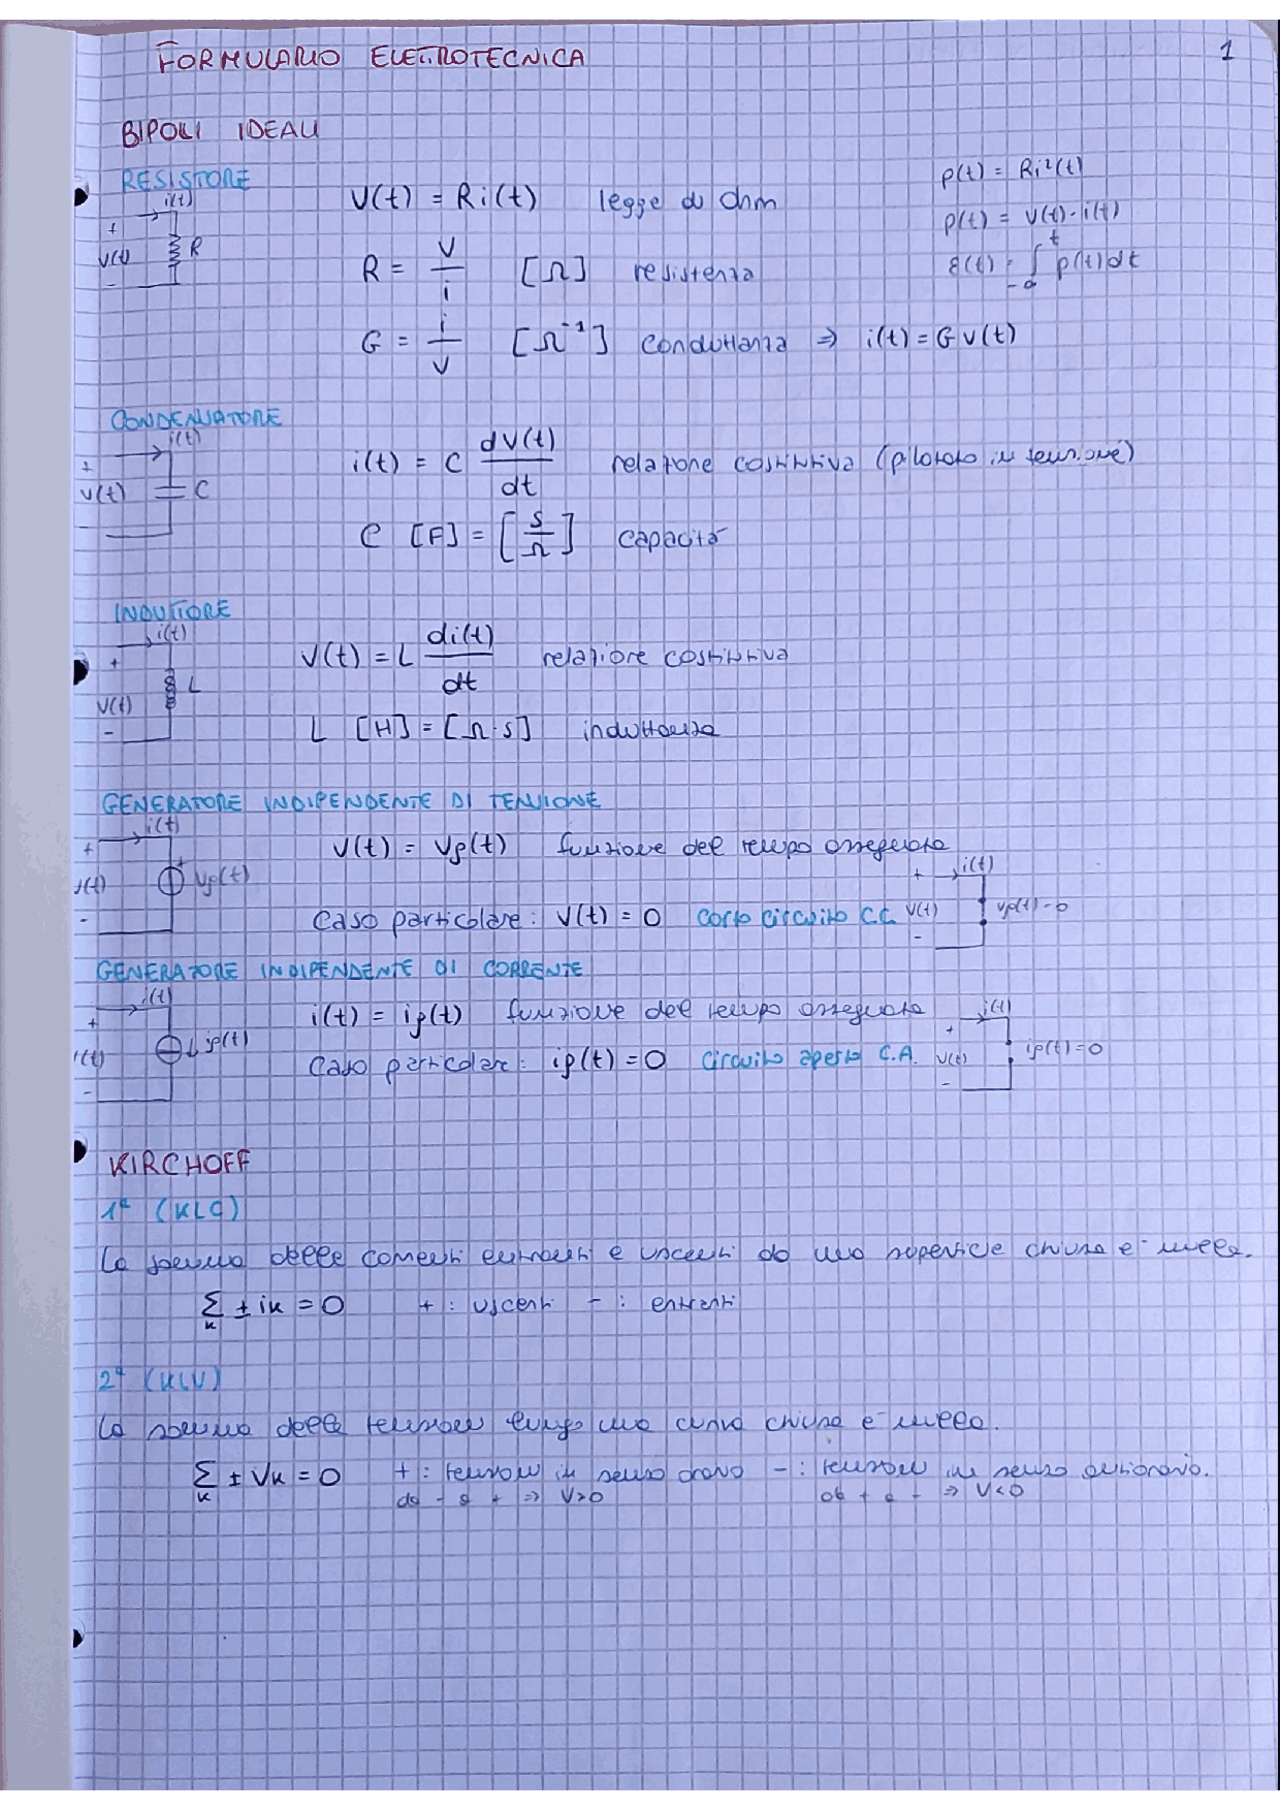 FORMULARIO ELETTROTECNICA 1
BIPOLI IDEALI
RESISTORE
i(t)
+
v(t) R
-
V(t) = Ri(t) legge di Ohm
R = V/i [Ω] resistenza
G = i/V [Ω⁻¹] conduttanza ⇒ i(t) = G v(t)
p(t) = Ri²(t)
p(t) = v(t)·i(t)
ε(t) = ∫_{-∞}^{t} p(t)dt
CONDENSATORE
i(t)
+
v(t) C
-
i(t) = C dv(t)/dt relazione costitutiva (pilotato in tensione)
C [F] = [S/Ω] capacità
INDUTTORE
i(t)
+
v(t) L
-
V(t) = L di(t)/dt relazione costitutiva
L [H] = [Ω·s] induttanza
GENERATORE INDIPENDENTE DI TENSIONE
i(t)
+ +
v(t) Vg(t)
-
V(t) = Vg(t) funzione del tempo assegnata
Caso particolare: V(t) = 0 corto circuito C.C.
+ i(t)
V(t) vg(t)=0
-
GENERATORE INDIPENDENTE DI CORRENTE
i(t)
+
v(t) ig(t)
-
i(t) = ig(t) funzione del tempo assegnata
Caso particolare: ig(t) = 0 Circuito aperto C.A.
i(t)
+
V(t) ig(t)=0
-
KIRCHOFF
1ª (KLC)
La somma delle correnti entranti e uscenti da una superficie chiusa è nulla.
Σ_k ± ik = 0 + : uscenti - : entranti
2ª (KLV)
La somma delle tensioni lungo una curva chiusa è nulla.
Σ_k ± Vk = 0 + : tensioni in senso orario - : tensioni in senso antiorario.
da - a + ⇒ V>0 da + a - ⇒ V<0